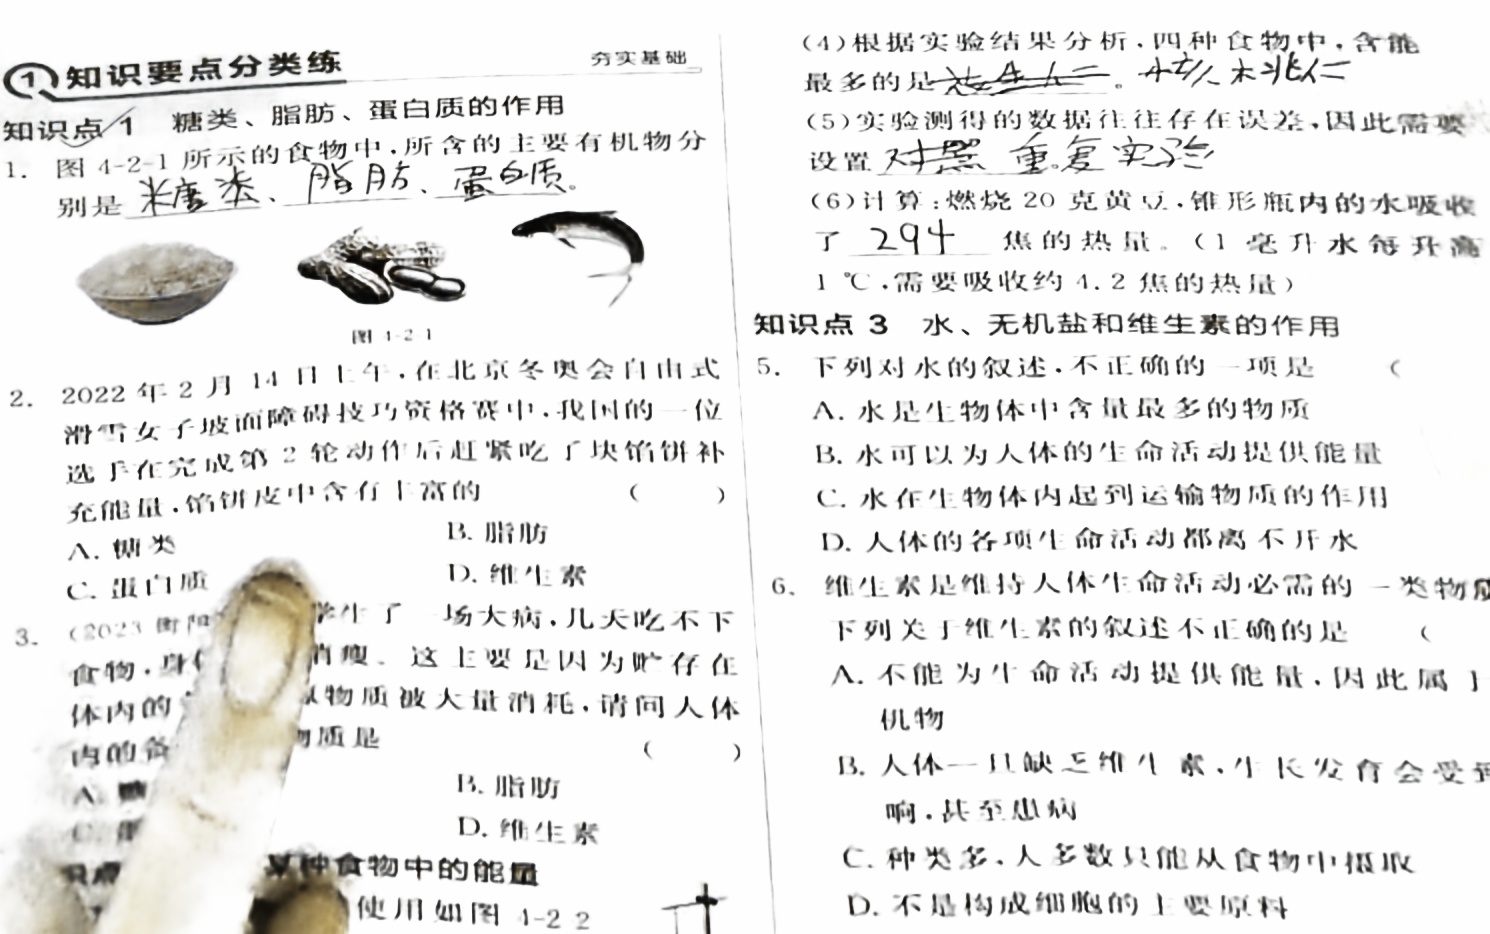 ① 知识要点分类练 夯实基础
知识点 1 糖类、脂肪、蛋白质的作用
1. 图 4-2-1 所示的食物中,所含的主要有机物分
别是 糖类、脂肪、蛋白质。
图 4-2-1
2. 2022 年 2 月 14 日上午,在北京冬奥会自由式
滑雪女子坡面障碍技巧资格赛中,我国的一位
选手在完成第 2 轮动作后赶紧吃了块馅饼补
充能量,馅饼皮中含有丰富的 ( )
A. 糖类 B. 脂肪
C. 蛋白质 D. 维生素
3. (2023 衡阳 学生了一场大病,几天吃不下
食物,身 消瘦。这主要是因为贮存在
体内的 物质被大量消耗,请问人体
内的备 物质是 ( )
A. 糖 B. 脂肪
C. 蛋 D. 维生素
识点 某种食物中的能量
使用如图 4-2-2
(4)根据实验结果分析,四种食物中,含能
最多的是 。 核桃仁
(5)实验测得的数据往往存在误差,因此需要
设置 对照 重复实验
(6)计算:燃烧 20 克黄豆,锥形瓶内的水吸收
了 294 焦的热量。(1 毫升水每升高
1 ℃,需要吸收约 4.2 焦的热量)
知识点 3 水、无机盐和维生素的作用
5. 下列对水的叙述,不正确的一项是 (
A. 水是生物体中含量最多的物质
B. 水可以为人体的生命活动提供能量
C. 水在生物体内起到运输物质的作用
D. 人体的各项生命活动都离不开水
6. 维生素是维持人体生命活动必需的一类物质
下列关于维生素的叙述不正确的是 (
A. 不能为生命活动提供能量,因此属于
机物
B. 人体一旦缺乏维生素,生长发育会受到
响,甚至患病
C. 种类多,人多数只能从食物中摄取
D. 不是构成细胞的主要原料